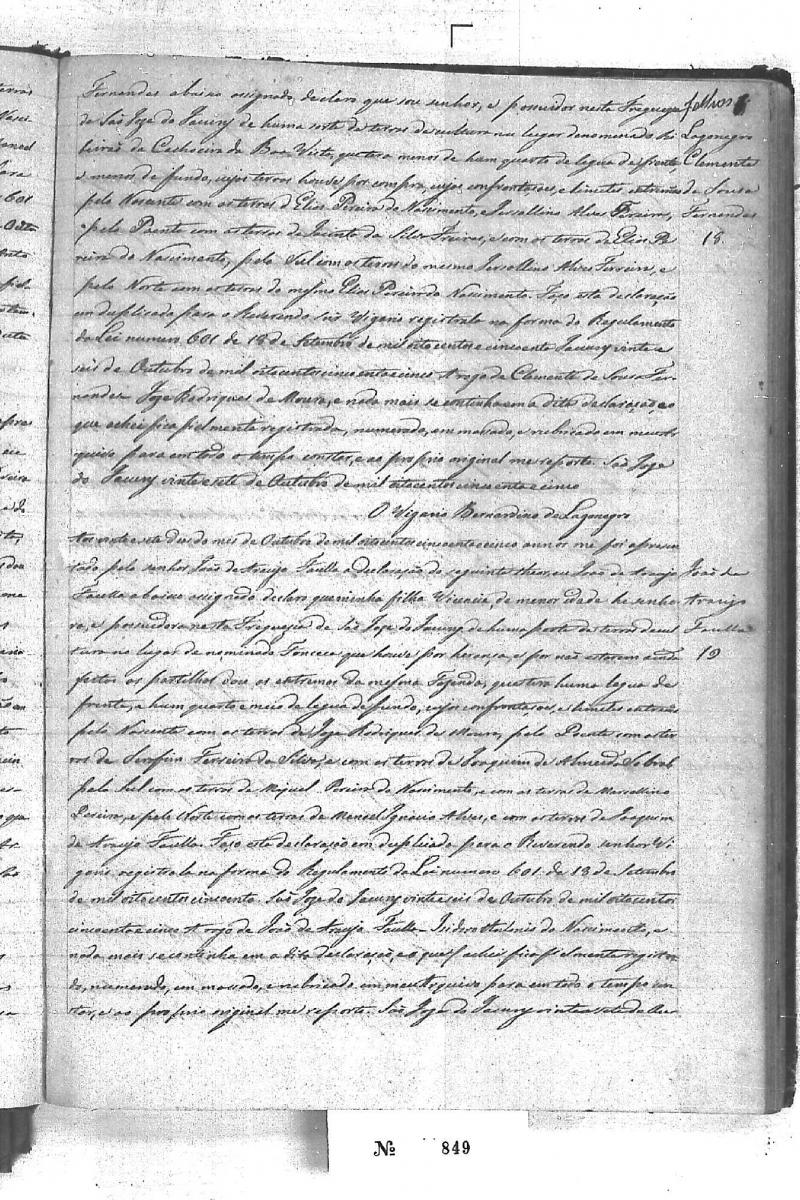 Fernandes abaixo assignado, declaro que sou senhor, e possuidor nesta Freguezia folhas
de São Joze do Jacury de huma sorte de terras de cultura no lugar denomenado Ri Lagonegro
beirão da Cachoeira da Boa Vista, que tera menos de hum quarto de legua de frente, Clemente
e menos de fundo, cujas terras houve por compra, cujas confrontaçoes, e limites extremos de Sousa
pelo Nascente com as terras d Elias Pereira do Nascimento, e Jersellino Alves Ferreira, Fernandes
e pelo Poente com as terras de Jacinto da Silva Freires, e com as terras de Elias Pe 18
reira do Nascimento, pelo Sul com as terras do mesmo Jersellino Alves Ferreira, e
pelo Norte com as terras do mesmo Elias Pereira do Nascimento. Faço esta declaração
em duplicada para o Reverendo snr Vigario registrala na forma do Regulamento
da Lei numero 601 de 18 de Setembro de mil oito centos e cincoenta Jacury vinte e
seis de Outubro de mil oitocentos cincoenta e cinco A rogo de Clemente de Sousa Fer-
nandes Joze Rodrigues de Moura, e nada mais se continha em a dita declaração, e o
que achei fica fielmente registrada, numerado, em massado, e rubricado em meu Ar
quivo para em todo o tempo constar, e ao proprio original me reporto. São Joze
do Jacury vinte e sete de Outubro de mil oitocentos cincoenta e cinco
O Vigario Bernardino de Lagonegro
Aos vinte e sete dias do mes de Outubro de mil oitocentos cincoenta e cinco annos me foi apresen
tado pelo senhor João de Araujo Faulla a declaração do seguinte theor, eu João de Araujo João de
Faulla abaixo assignado declaro que minha filha Vicencia, de menor idade he senho Araujo
ra, e possuidora nesta Freguezia de São Joze do Jacury de huma parte de terras de cul Faulla
tura no lugar denominado Fonseca que houve por herança, e por não estarem ainda 19
feitas as partilhas dou os extremos da mesma Fazenda, que tera huma legua de
frente, e hum quarto e meio de legua de fundo, cujas confrontaçoes, e limites extremos
pelo Nascente com as terras de Joze Rodrigues de Moura, pelo Poente com as ter
ras de Serafim Ferreira da Silva, e com as terras de Joaquim de Almeida Sobral
pelo Sul com as terras de Miguel Pereira do Nascimento, e com as terras de Marcellino
Pereira, e pelo Norte com as terras de Manoel Ignacio Alves, e com as terras de Joaquim
de Araujo Faulla. Faço esta declaração em duplicada para o Reverendo senhor Vi
gario registrala na forma do Regulamento da Lei numero 601 de 18 de Setembro
de mil oitocentos cincoenta. São Joze do Jacury vinte e seis de Outubro de mil oitocentos
cincoenta e cinco A rogo de João de Araujo Faulla Isidro Antonio do Nascimento, e
nada mais se continha em a dita declaração, e o que achei fica fielmente registra
do, numerado, em massado, e rubricado em meu Arquivo para em todo o tempo con
star, e ao proprio original me reporto. São Joze do Jacury vinte e sete de Ou
Nº 849